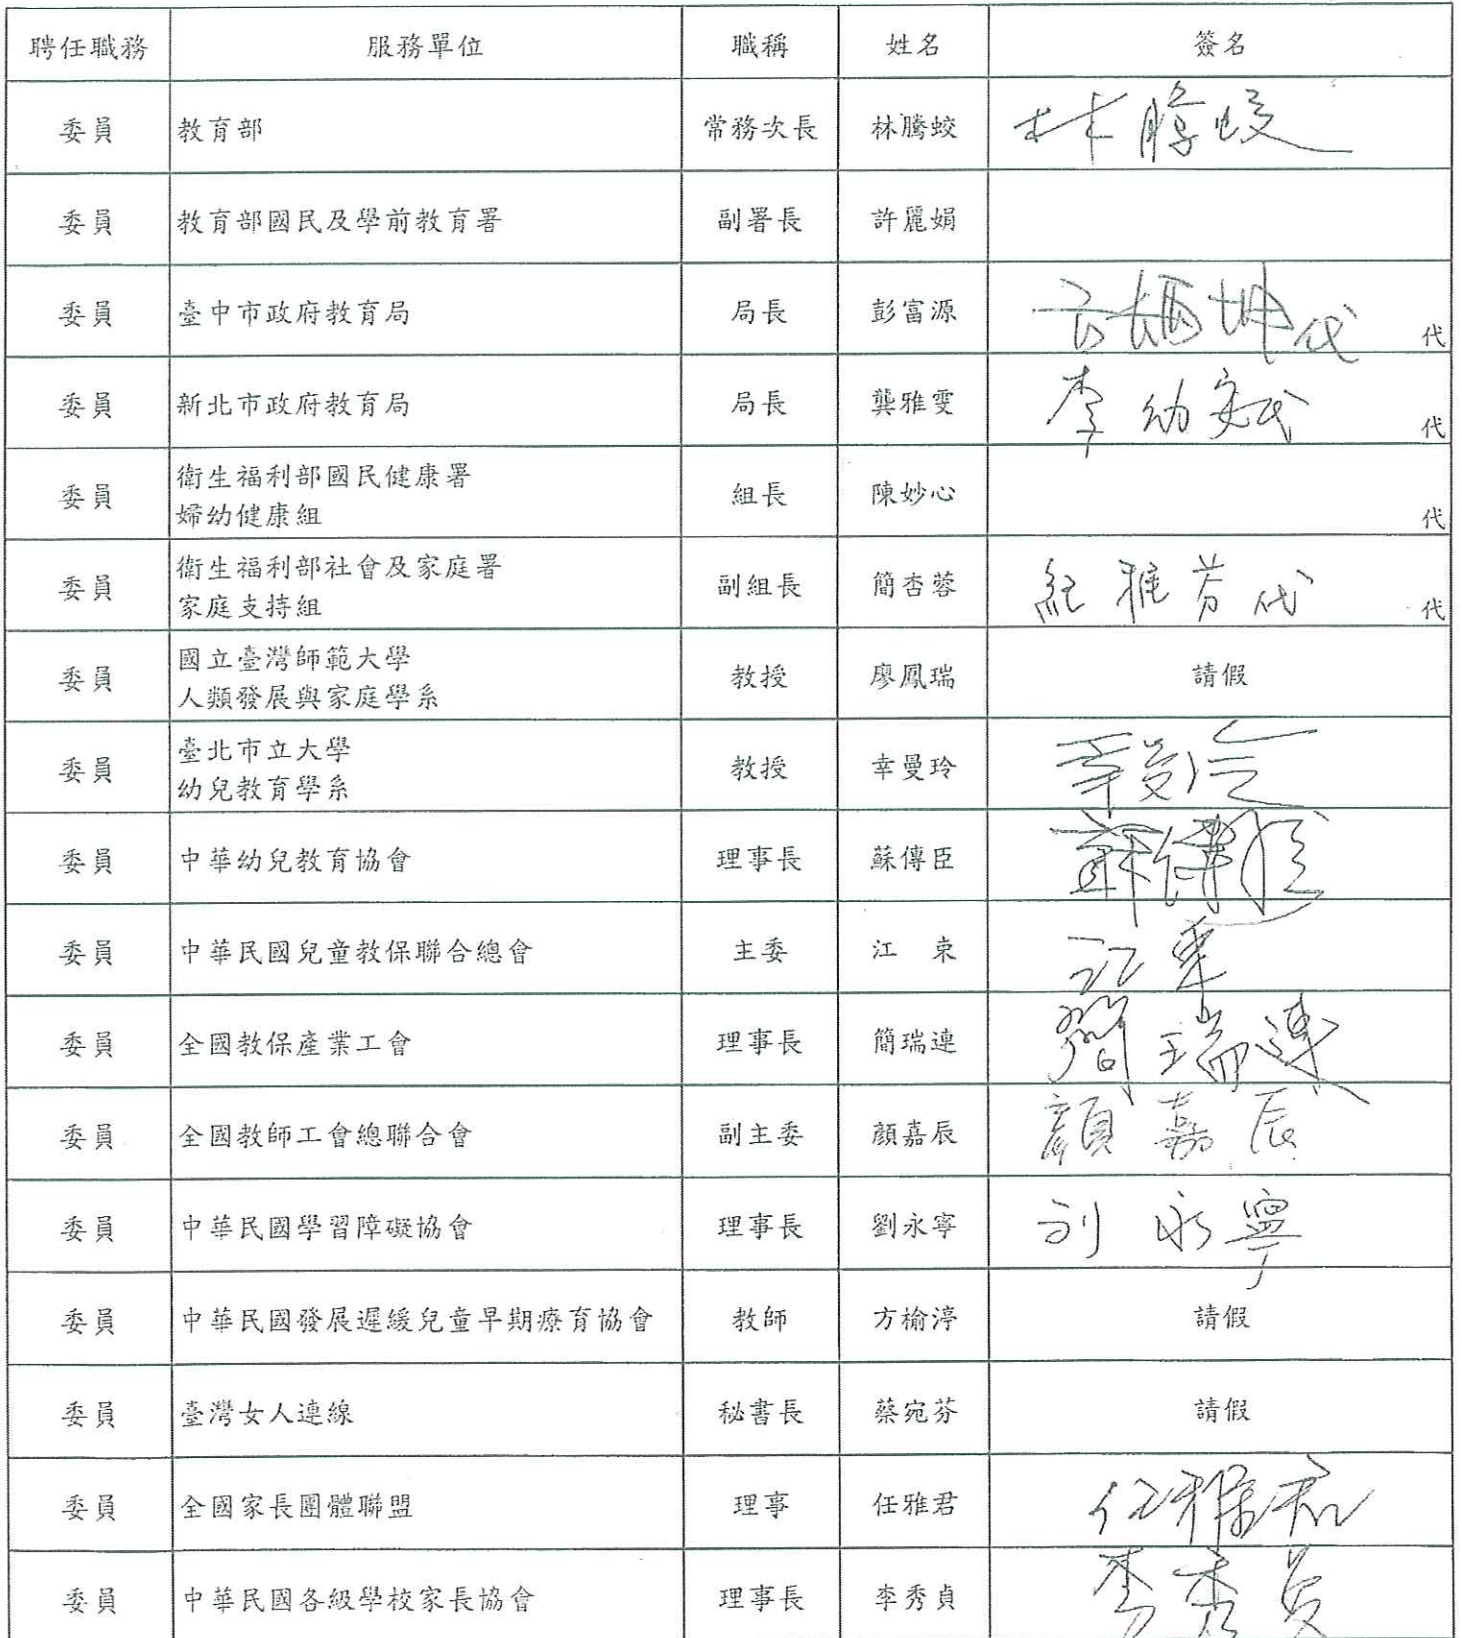 聘任職務 服務單位 職稱 姓名 簽名
委員 教育部 常務次長 林騰蛟 林騰蛟
委員 教育部國民及學前教育署 副署長 許麗娟
委員 臺中市政府教育局 局長 彭富源 代 代
委員 新北市政府教育局 局長 龔雅雯 李幼安代 代
委員 衛生福利部國民健康署
婦幼健康組 組長 陳妙心 代
委員 衛生福利部社會及家庭署
家庭支持組 副組長 簡杏蓉 紀雅芬代 代
委員 國立臺灣師範大學
人類發展與家庭學系 教授 廖鳳瑞 請假
委員 臺北市立大學
幼兒教育學系 教授 幸曼玲 幸曼玲
委員 中華幼兒教育協會 理事長 蘇傳臣 蘇傳臣
委員 中華民國兒童教保聯合總會 主委 江 東 江東
委員 全國教保產業工會 理事長 簡瑞連 簡瑞連
委員 全國教師工會總聯合會 副主委 顏嘉辰 顏嘉辰
委員 中華民國學習障礙協會 理事長 劉永寧 刘永寧
委員 中華民國發展遲緩兒童早期療育協會 教師 方榆渟 請假
委員 臺灣女人連線 秘書長 蔡宛芬 請假
委員 全國家長團體聯盟 理事 任雅君 任雅君
委員 中華民國各級學校家長協會 理事長 李秀貞 李秀貞